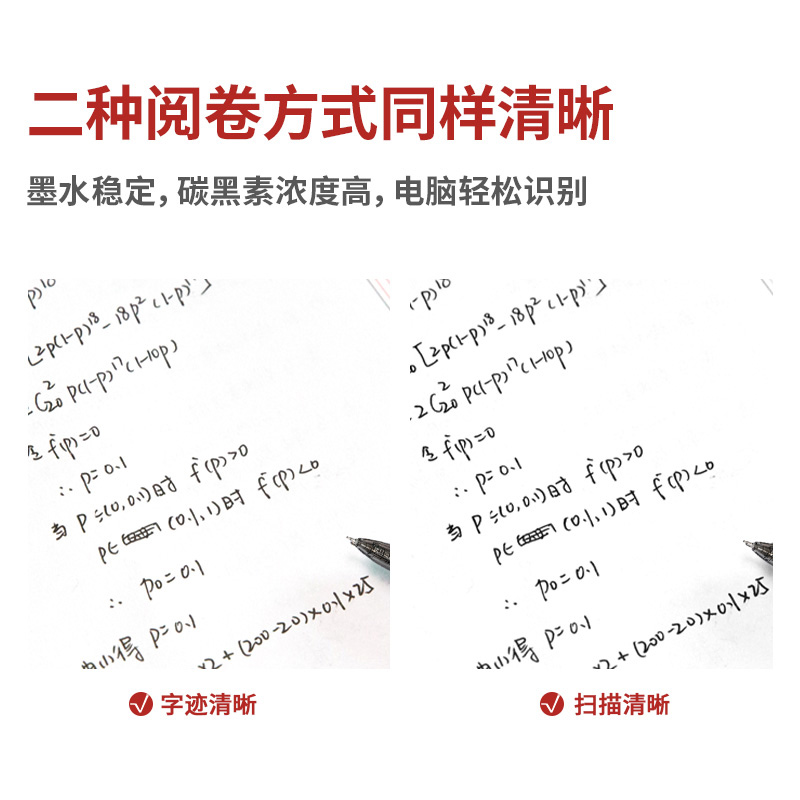 二种阅卷方式同样清晰
墨水稳定，碳黑素浓度高，电脑轻松识别
[2p(1-p)¹⁸-18p²(1-p)¹⁷]
C²₂₀ p(1-p)¹⁷(1-10p)
f'(p)=0
∴ p=0.1
当 p∈(0,0.1)时 f'(p)>0
p∈ (0.1,1)时 f'(p)<0
∴ p₀=0.1
得 p=0.1
×2+(200-20)×0.1×25
字迹清晰
[2p(1-p)¹⁸-18p²(1-p)¹⁷]
2C²₂₀ p(1-p)¹⁷(1-10p)
令 f'(p)=0
∴ p=0.1
当 p∈(0,0.1)时 f'(p)>0
p∈ (0.1,1)时 f'(p)<0
∴ p₀=0.1
得 p=0.1
×2+(200-20)×0.1×25
扫描清晰